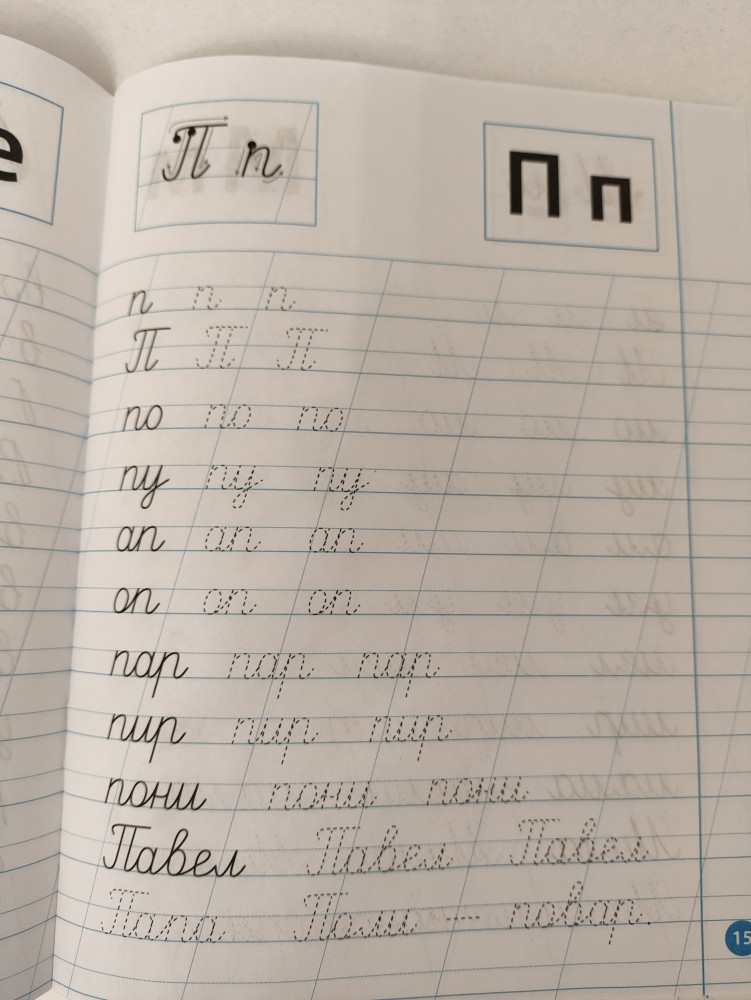 е
П п П п
п п п
П П П
по по по
пу пу пу
ап ап ап
оп оп оп
пар пар пар
пир пир пир
пони пони пони
Павел Павел Павел
Папа Поли — повар.
15